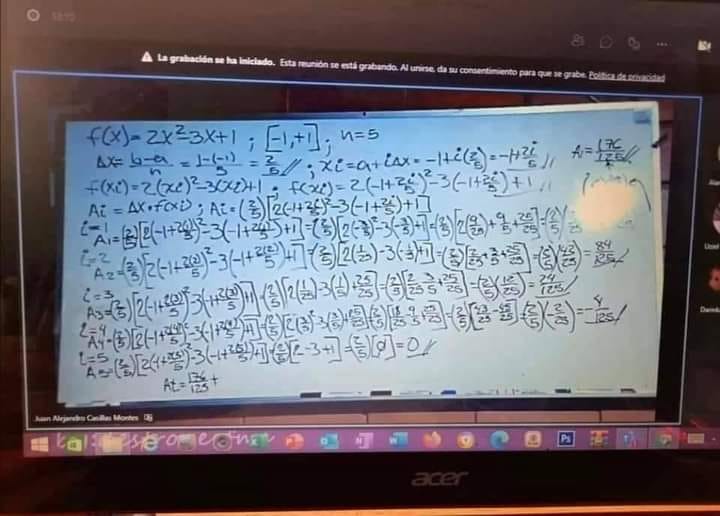 18:15
La grabación se ha iniciado. Esta reunión se está grabando. Al unirse, da su consentimiento para que se grabe. Política de privacidad
f(x)=2x²-3x+1 ; [1,+1] ; n=5
Δx= b-a/n = 1-(-1)/5 = 2/5 // ; xi=a+iΔx=-1+i(2/5)=-1+2i/5 //
A1=176/125 //
f(xi)=2(xi)²-3(xi)+1 ; f(xi)=2(-1+2i/5)²-3(-1+2i/5)+1 //
Ai=Δx·f(xi) ; Ai=(2/5)[2(-1+2i/5)²-3(-1+2i/5)+1]
i=1
A1=(2/5)[2(-1+2(1)/5)²-3(-1+2(1)/5)+1]=(2/5)[2(-3/5)²-3(-3/5)+1]=(2/5)[2(9/25)+9/5+25/25]=(2/5)
i=2
A2=(2/5)[2(-1+2(2)/5)²-3(-1+2(2)/5)+1]=(2/5)[2(1/25)-3(-1/5)+1]=(2/5)[2/25+3/5+25/25]=(2/5)(42/25)=84/125 //
i=3
A3=(2/5)[2(-1+2(3)/5)²-3(-1+2(3)/5)+1]=(2/5)[2(1/25)-3(1/5)+25/25]=(2/5)[2/25-3/5+25/25]=(2/5)(12/25)=24/125 //
i=4
A4=(2/5)[2(-1+2(4)/5)²-3(-1+2(4)/5)+1]=(2/5)[2(3/5)²-3(3/5)+25/25]=(2/5)[18/25-9/5+25/25]=(2/5)[43/25-45/25]=(2/5)(-2/25)=-4/125 //
i=5
A5=(2/5)[2(-1+2(5)/5)²-3(-1+2(5)/5)+1]=(2/5)[2-3+1]=(2/5)[0]=0 //
At=176/125+
Juan Alejandro Casillas Montes
Ps
acer